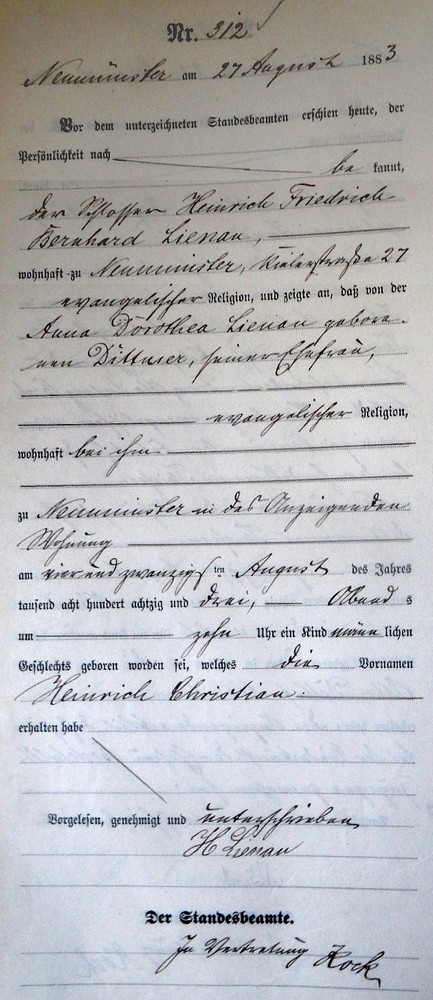 Nr. 312
Neumünster am 27 August 1883
Vor dem unterzeichneten Standesbeamten erschien heute, der
Persönlichkeit nach be kannt,
der Schlosser Heinrich Friedrich
Bernhard Lienau,
wohnhaft zu Neumünster, Kielerstraße 27
evangelischer Religion, und zeigte an, daß von der
Anna Dorothea Lienau gebore-
nen Dittmer, seiner Ehefrau,
evangelischer Religion,
wohnhaft bei ihm
zu Neumünster in des Anzeigenden
Wohnung
am vier und zwanzigsten August des Jahres
tausend acht hundert achtzig und drei, Abends
um zehn Uhr ein Kind männlichen
Geschlechts geboren worden sei, welches die Vornamen
Heinrich Christian.
erhalten habe
Vorgelesen, genehmigt und unterschrieben
H Lienau
Der Standesbeamte.
In Vertretung Kock